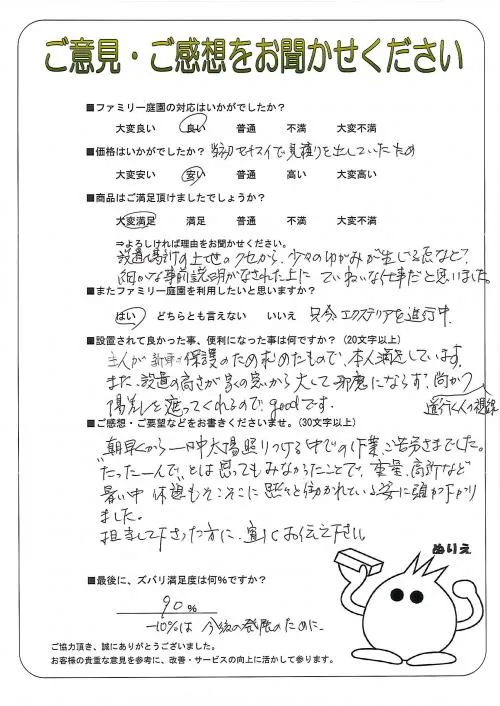 ご意見・ご感想をお聞かせください
■ファミリー庭園の対応はいかがでしたか?
大変良い 良い 普通 不満 大変不満
■価格はいかがでしたか? 当初セキスイで見積りを出していたため
大変安い 安い 普通 高い 大変高い
■商品はご満足頂けましたでしょうか?
大変満足 満足 普通 不満 大変不満
⇒よろしければ理由をお聞かせください。
設置場所の土地のクセから、少々のゆがみが生じる点など、
細かな事前説明がなされた上に ていねいな仕事だと思いました。
■またファミリー庭園を利用したいと思いますか?
はい どちらとも言えない いいえ 只今エクステリアを進行中
■設置されて良かった事、便利になった事は何ですか?(20文字以上)
主人が新車の保護のため求めたもので、本人満足しています。
また、設置の高さが家の窓から大して邪魔にならず、尚かつ
通行人の視線
陽差しを遮ってくれるので goodです。
■ご感想・ご要望などをお書きくださいませ。(30文字以上)
朝早くから一日中太陽照りつける中での作業、ご苦労さまでした。
"たった一人で"とは思ってもみなかったことで、重量、高所など
暑い中 休憩もそこそこに黙々と働かれている姿に頭が下がり
ました。
担当して下さった方に、宜しくお伝え下さい。
ぬりえ
■最後に、ズバリ満足度は何%ですか?
90 %
-10%は 今後の発展のために。
ご協力頂き、誠にありがとうございました。
お客様の貴重な意見を参考に、改善・サービスの向上に活かして参ります。